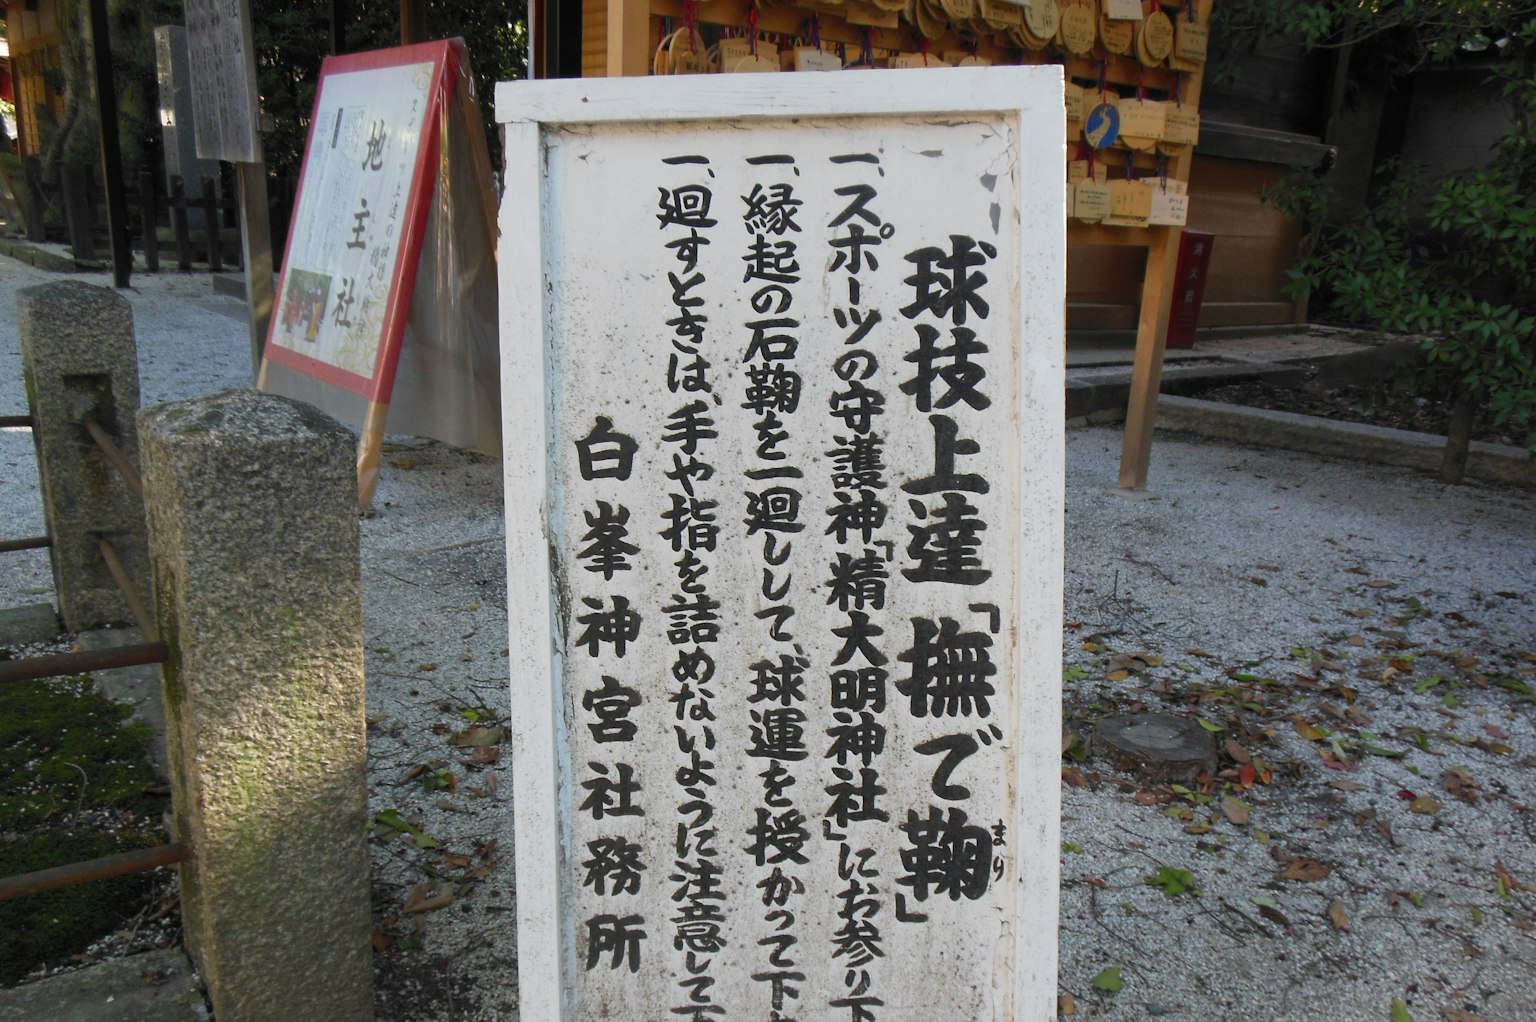 球技上達「撫で鞠」
まり
一、スポーツの守護神「精大明神社」にお参り下
一、縁起の石鞠を一廻しして、球運を授かって下
一、廻すときは、手や指を詰めないように注意して下
白峯神宮社務所
地主社